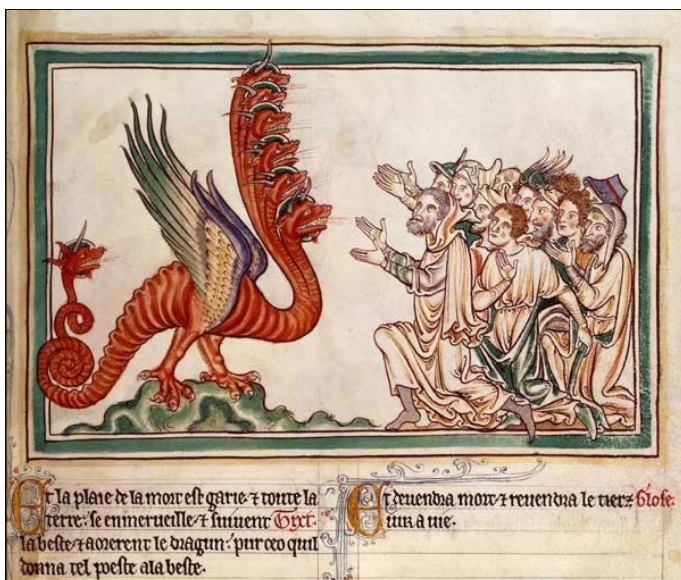 Et la plaie de la mort est garie ⁊ toute la
terre se enmerueille ⁊ siuuent Tyxt.
la beste ⁊ aorerent le dragun. pur ceo quil
donna tel poeste a la beste.
Et deuendra mort ⁊ reuendra le tierz Glose.
iur a uie.